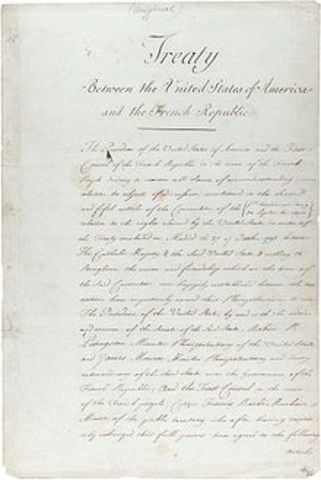 (Original)
Treaty
Between the United States of America
and the French Republic
The President of the United States of America and the First
Consul of the French Republic in the name of the French
People desiring to remove all Source of misunderstanding
relative to objects of discussion mentioned in the Second
and fifth articles of the Convention of the
relative to the rights claimed by the United States in virtue of
the Treaty concluded at Madrid the 27 of October 1795, between
His Catholic Majesty & the Said United States, & willing to
Strengthen the union and friendship which at the time of
the Said Convention was happily reestablished between the two
nations have respectively named their Plenipotentiaries to wit
The President of the United States, by and with the advice
and consent of the Senate of the Said States, Robert R.
Livingston Minister Plenipotentiary of the United States
and James Monroe Minister Plenipotentiary and Envoy
extraordinary of the Said States near the Government of the
French Republic; And the First Consul in the name
of the French people, Citizen Francis Barbé Marbois
Minister of the public treasury who after having
exchanged their full powers have agreed to the following
articles